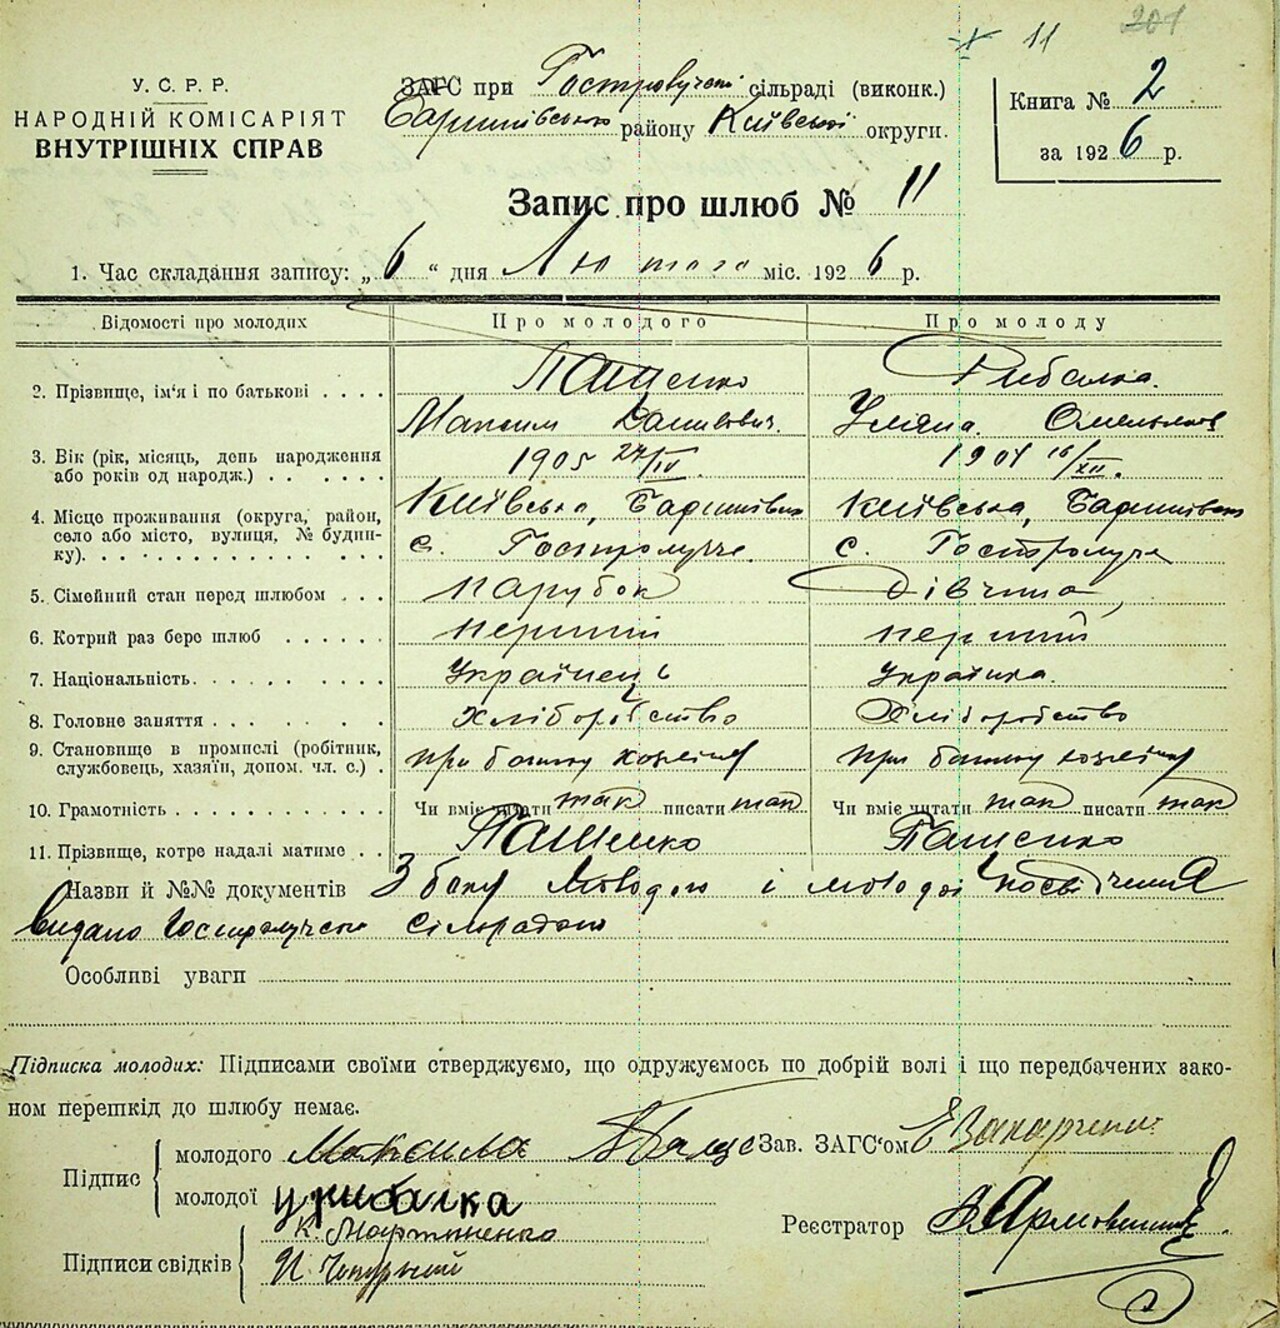 11 201
У. С. Р. Р.
НАРОДНІЙ КОМІСАРІЯТ
ВНУТРІШНІХ СПРАВ
ЗАГС при сільраді (виконк.)
району Київської округи.
Книга № 2
за 1926 р.
Запис про шлюб № 11
1. Час складання запису: „6“ дня Лютого міс. 1926 р.
Відомості про молодих Про молодого Про молоду
2. Прізвище, ім‘я і по батькові Пащенко Рибалка.
Максим Данилович. Уляна.
3. Вік (рік, місяць, день народження або років од народж.) 1905 27/IV. 1904 16/XII.
4. Місце проживання (округа, район, село або місто, вулиця, № будинку). Київська, Київська,
с. Гостролуччє с. Гостролуччє
5. Сімейний стан перед шлюбом парубок дівчина
6. Котрий раз бере шлюб перший перший
7. Національність Українець Українка.
8. Головне заняття хліборобство Хліборобство
9. Становище в промислі (робітник, службовець, хазяїн, допом. чл. с.) при батьку при батьку
10. Грамотність Чи вміє читати так писати так Чи вміє читати так писати так
11. Прізвище, котре надалі матиме Пащенко Пащенко
Назви й №№ документів З боку молодого і молодої посвідчення
видано сільрадою
Особливі уваги
Підписка молодих: Підписами своїми стверджуємо, що одружуємось по добрій волі і що передбачених зако-
ном перешкід до шлюбу немає.
Підпис молодого Зав. ЗАГС‘ом
молодої У рибалка
Реєстратор
Підписи свідків К. Мартиненко